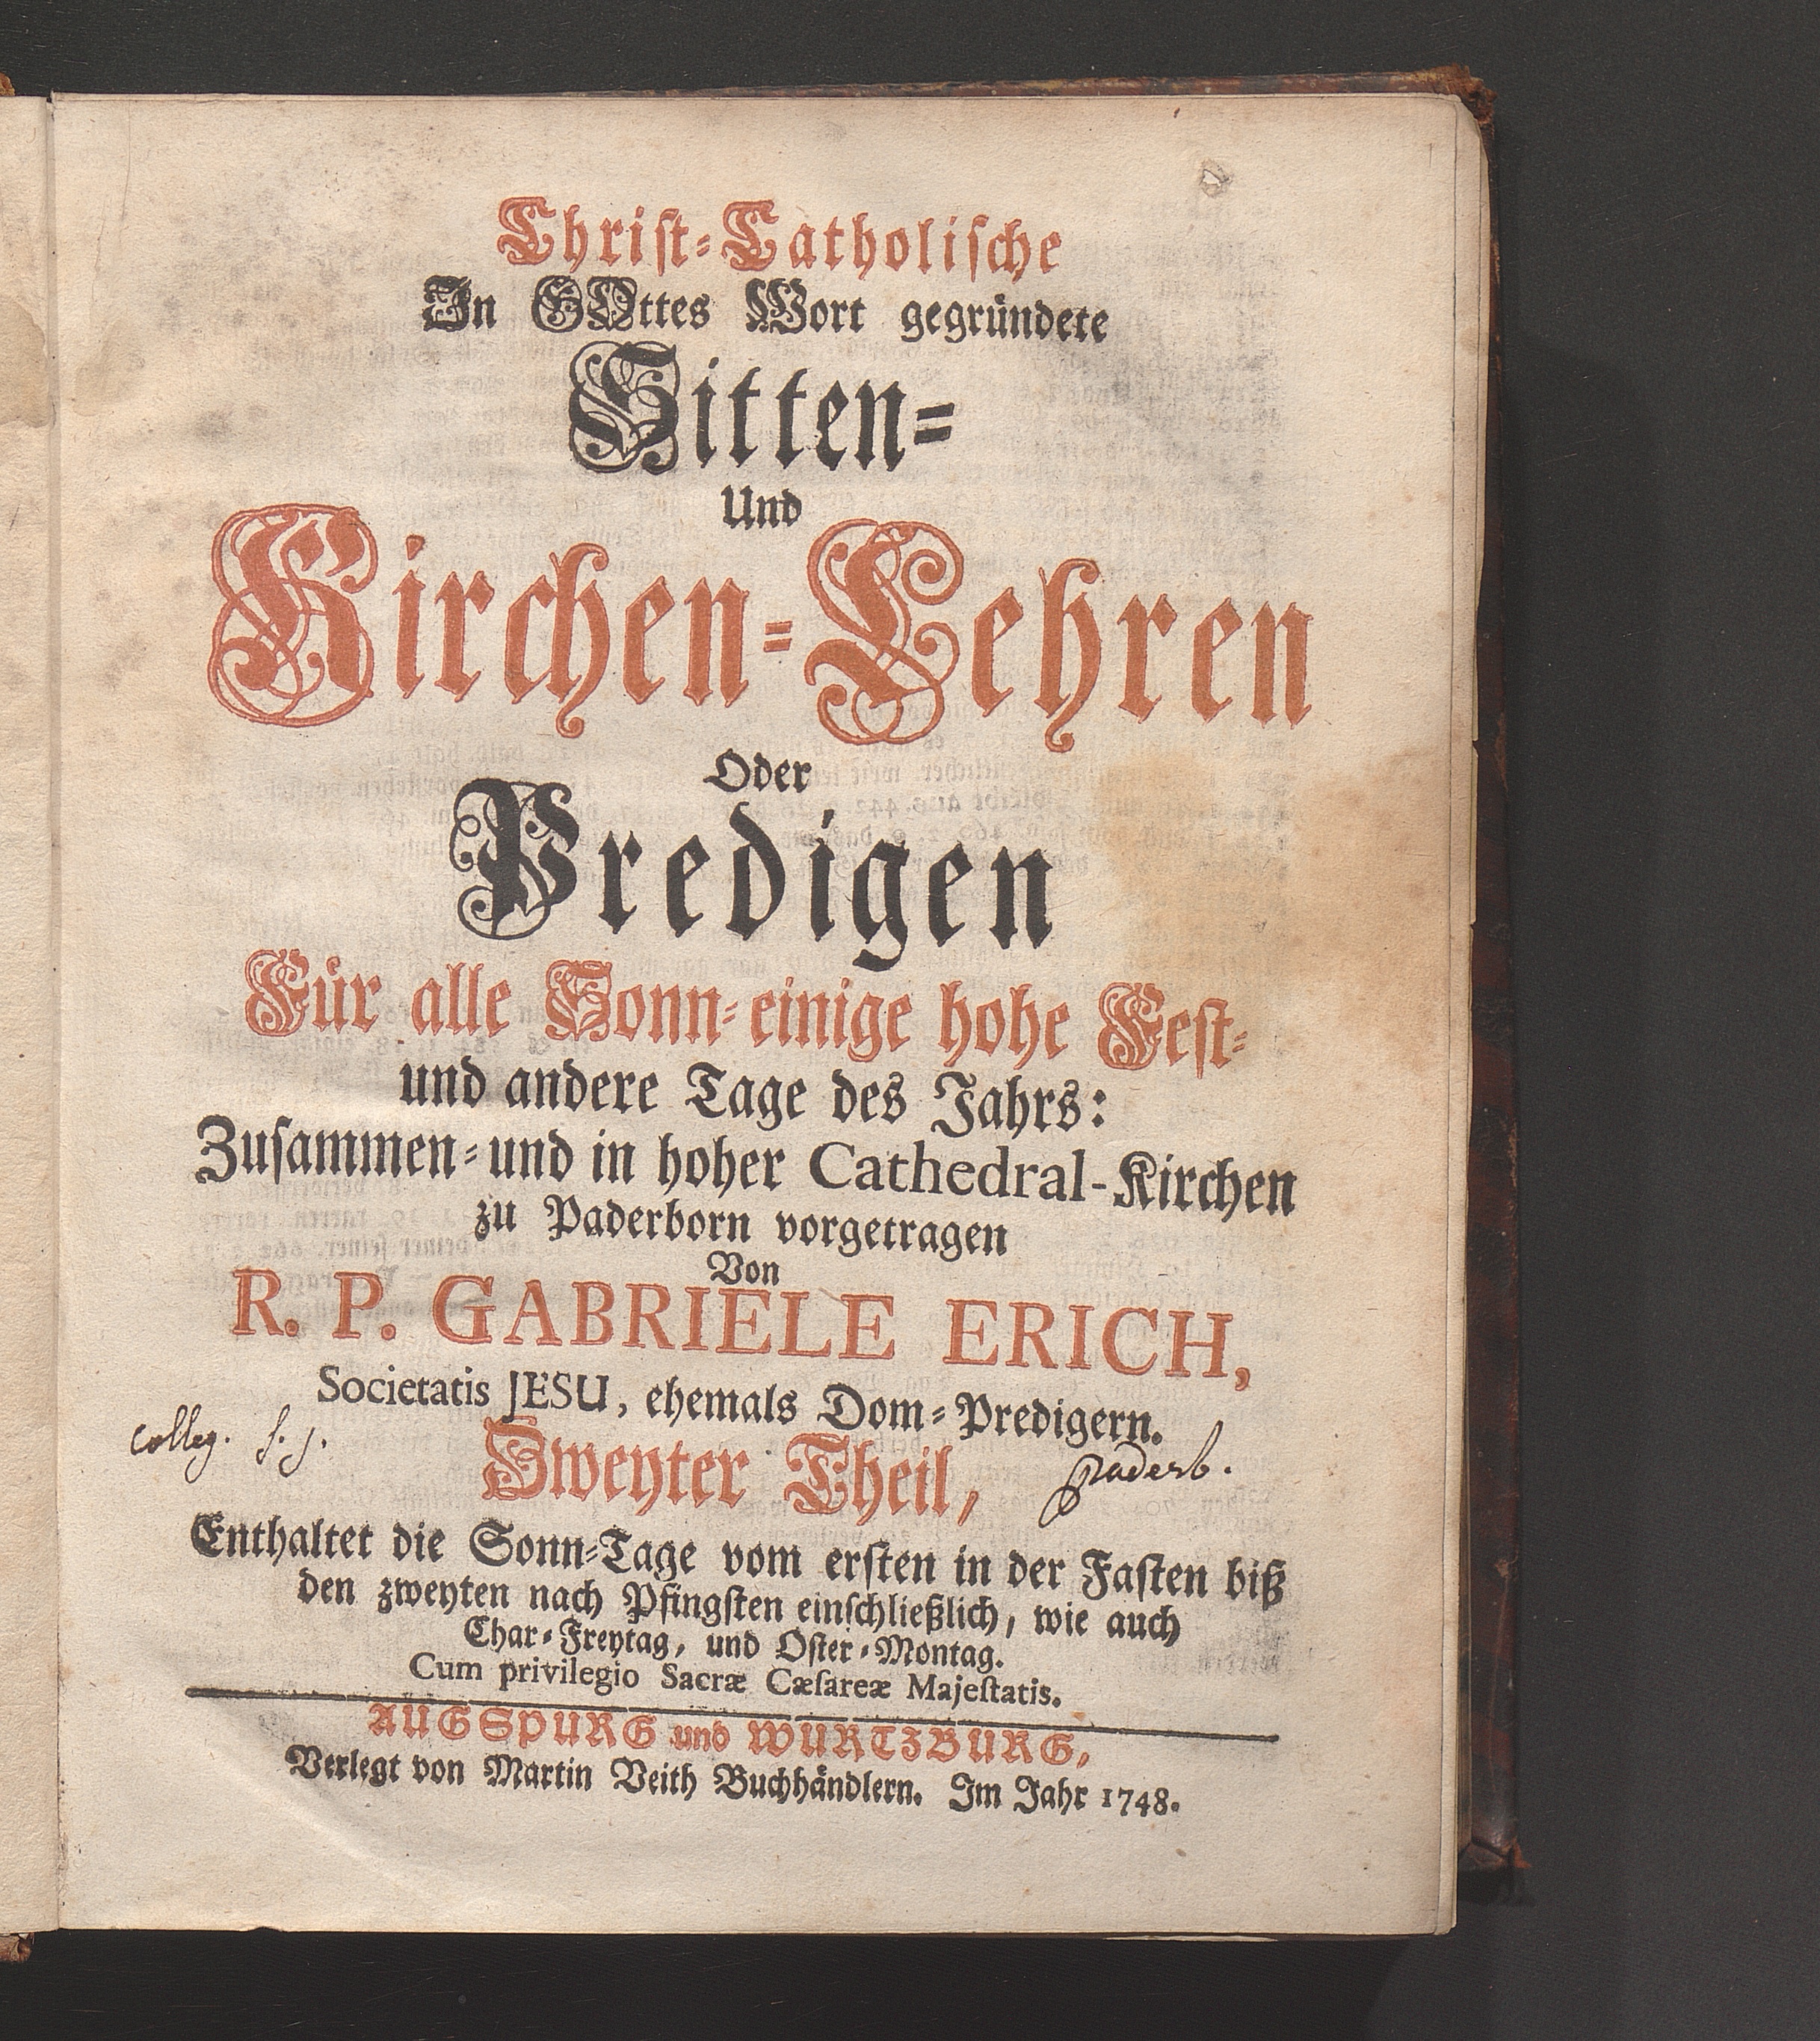 Christ-Catholische
In GOttes Wort gegründete
Sitten-
Und
Kirchen-Lehren
Oder
Predigen
Für alle Sonn-einige hohe Fest-
und andere Tage des Jahrs:
Zusammen-und in hoher Cathedral-Kirchen
zu Paderborn vorgetragen
Von
R. P. GABRIELE ERICH,
Societatis JESU, ehemals Dom-Predigern.
colleg. S. J.
Zweyter Theil,
Paderb.
Enthaltet die Sonn-Tage vom ersten in der Fasten biß
den zweyten nach Pfingsten einschließlich, wie auch
Char-Freytag, und Oster-Montag.
Cum privilegio Sacræ Cæsareæ Majestatis.
AUGSPURG und WURTZBURG,
Verlegt von Martin Veith Buchhändlern. Im Jahr 1748.